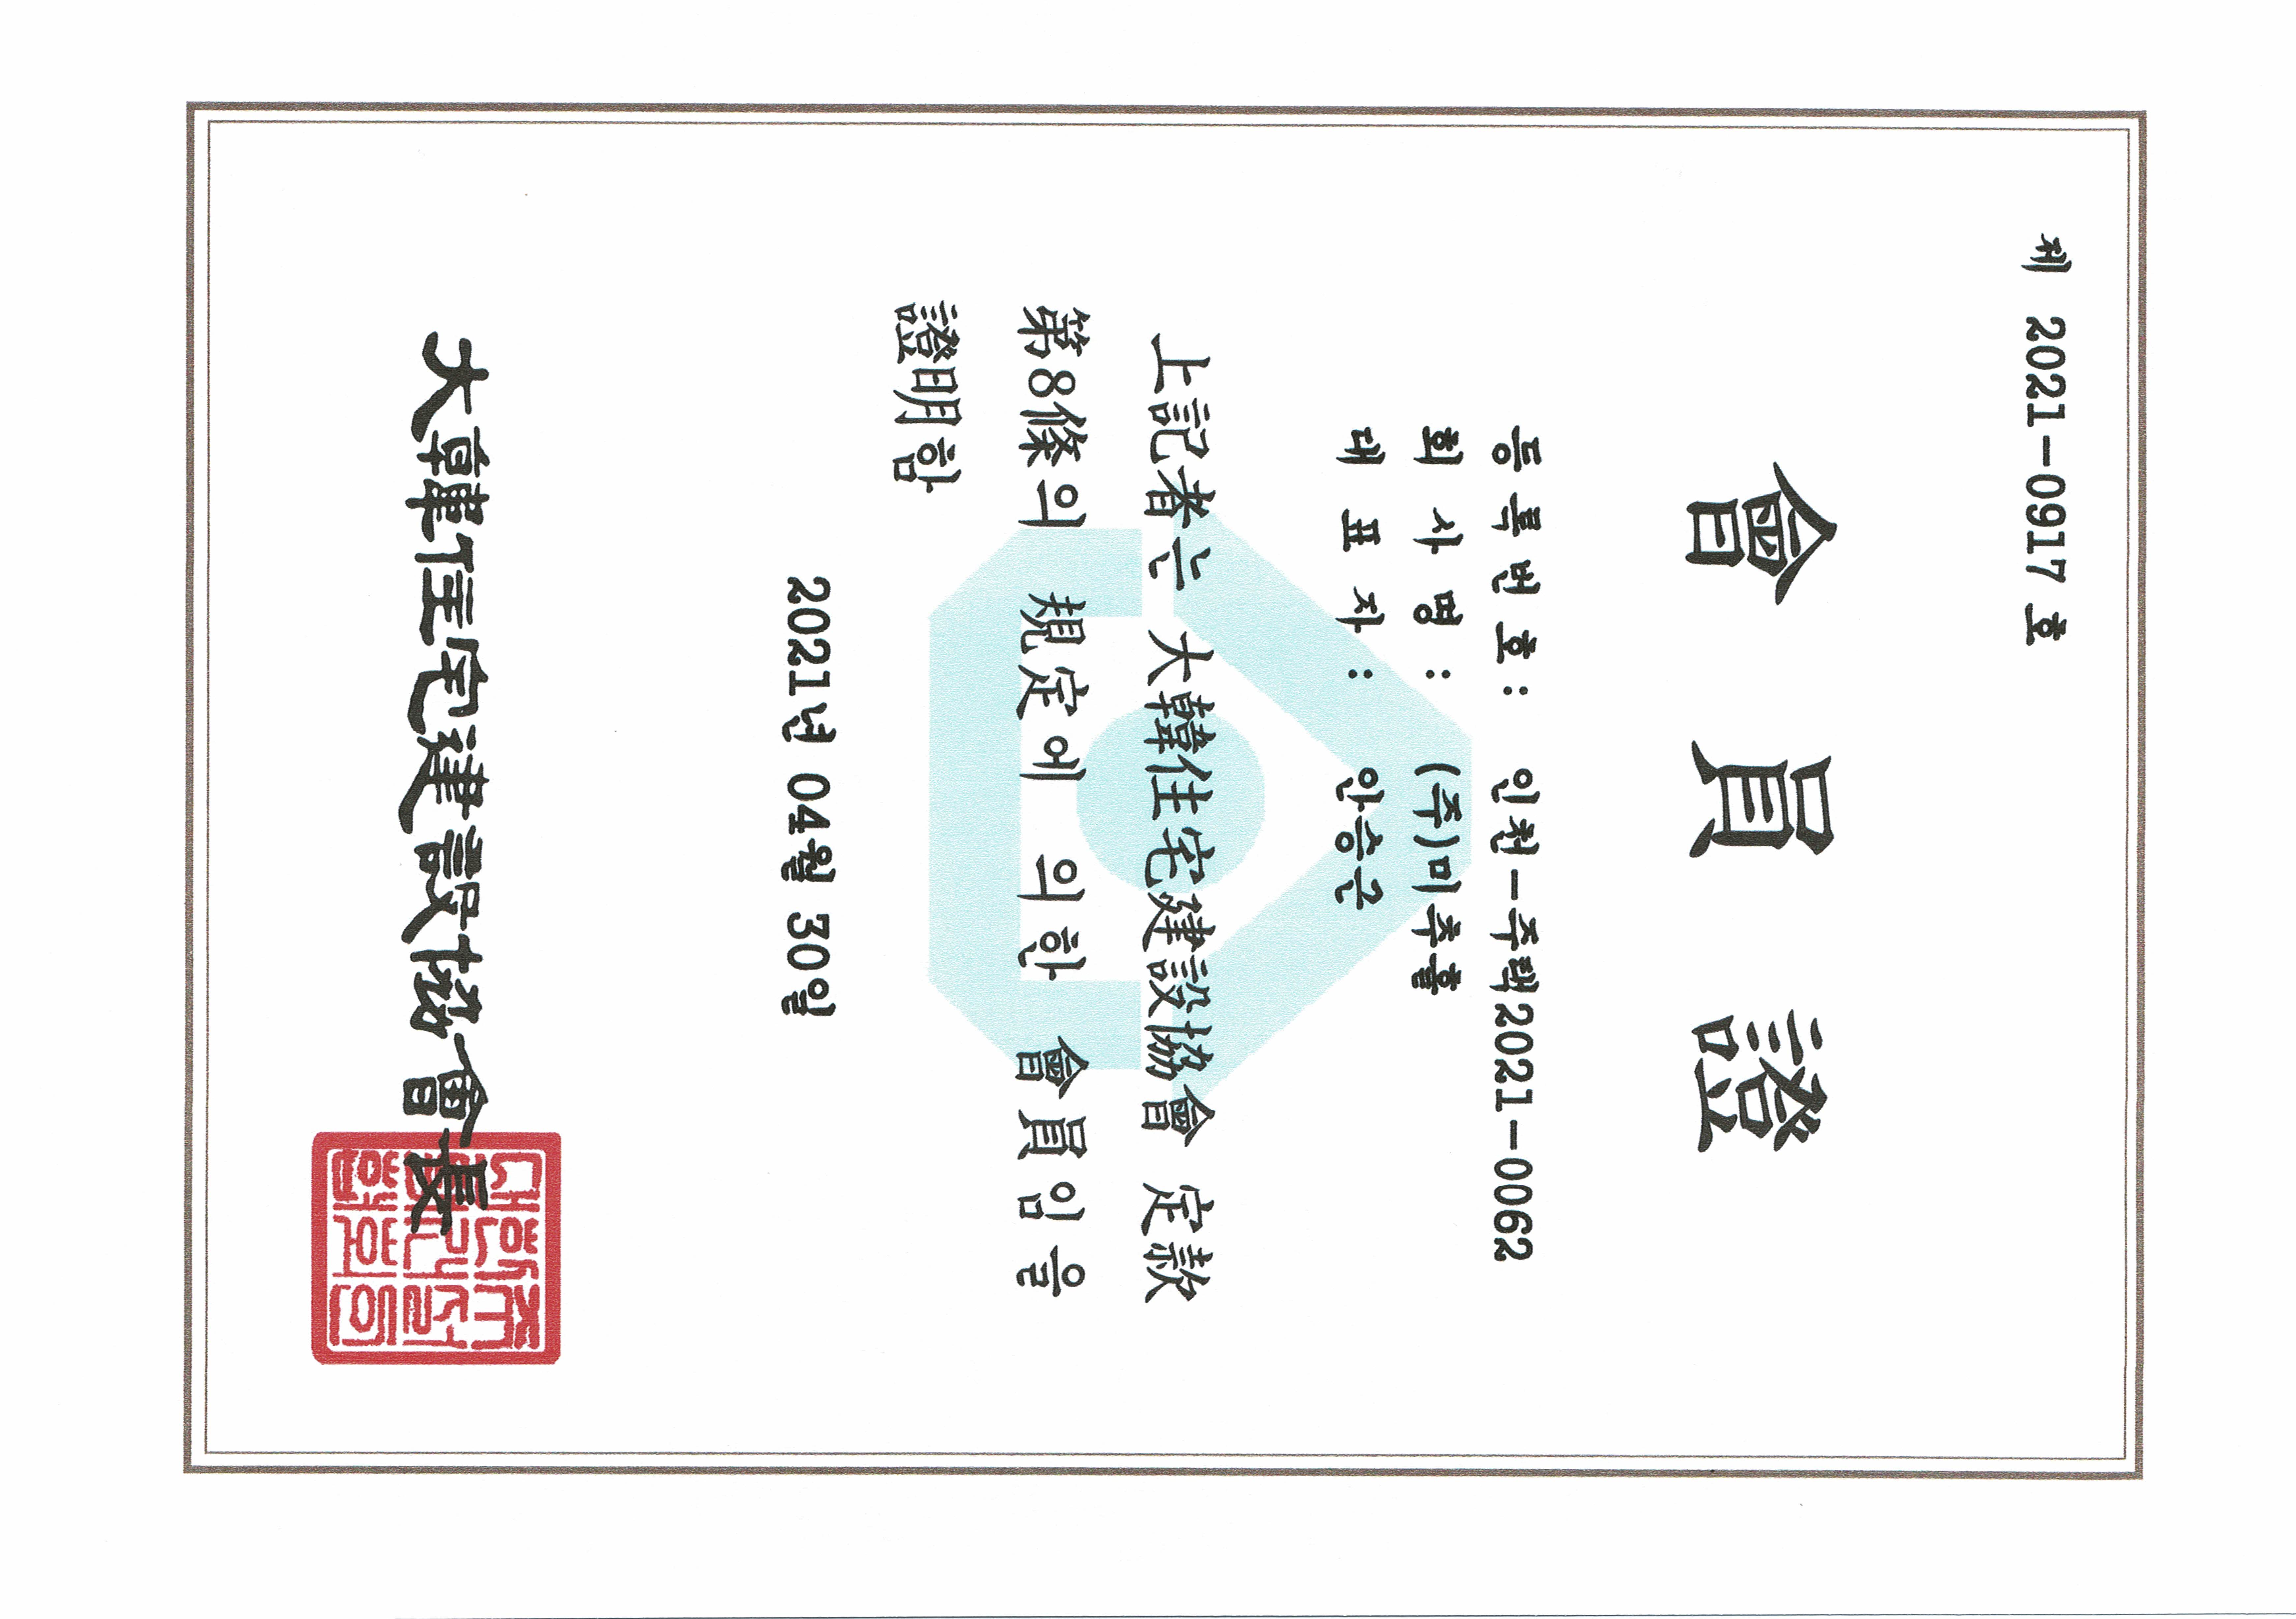 제 2021-0917 호
會員證
등록번호: 인천-주택2021-0062
회사명: (주)미추홀
대표자: 안승근
上記者는 大韓住宅建設協會 定款
第8條의 規定에 의한 會員임을
證明함
2021년 04월 30일
大韓住宅建設協會長